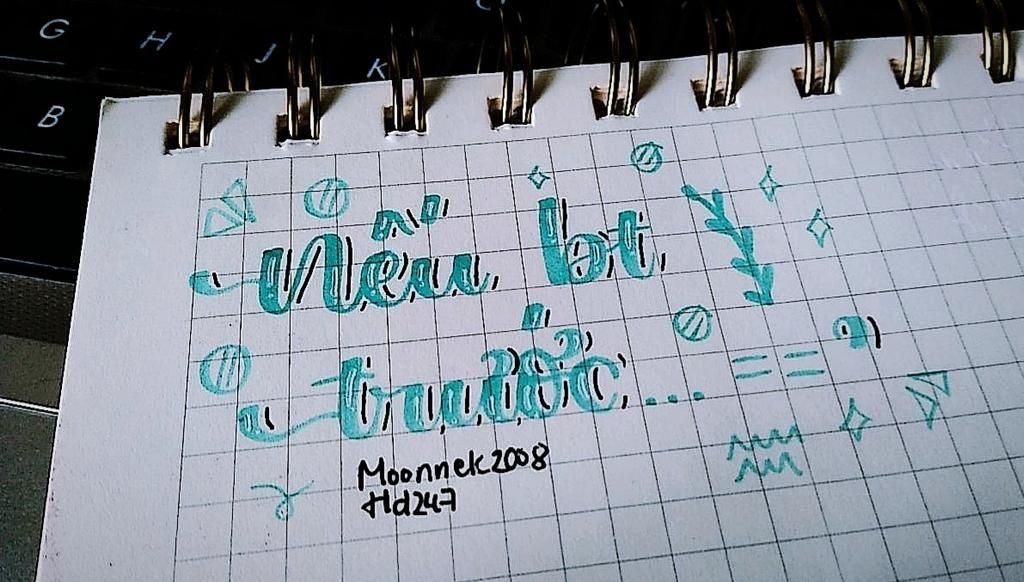 G H J K
B
Nếu bt
trước...
Moonnek2008
Hd247